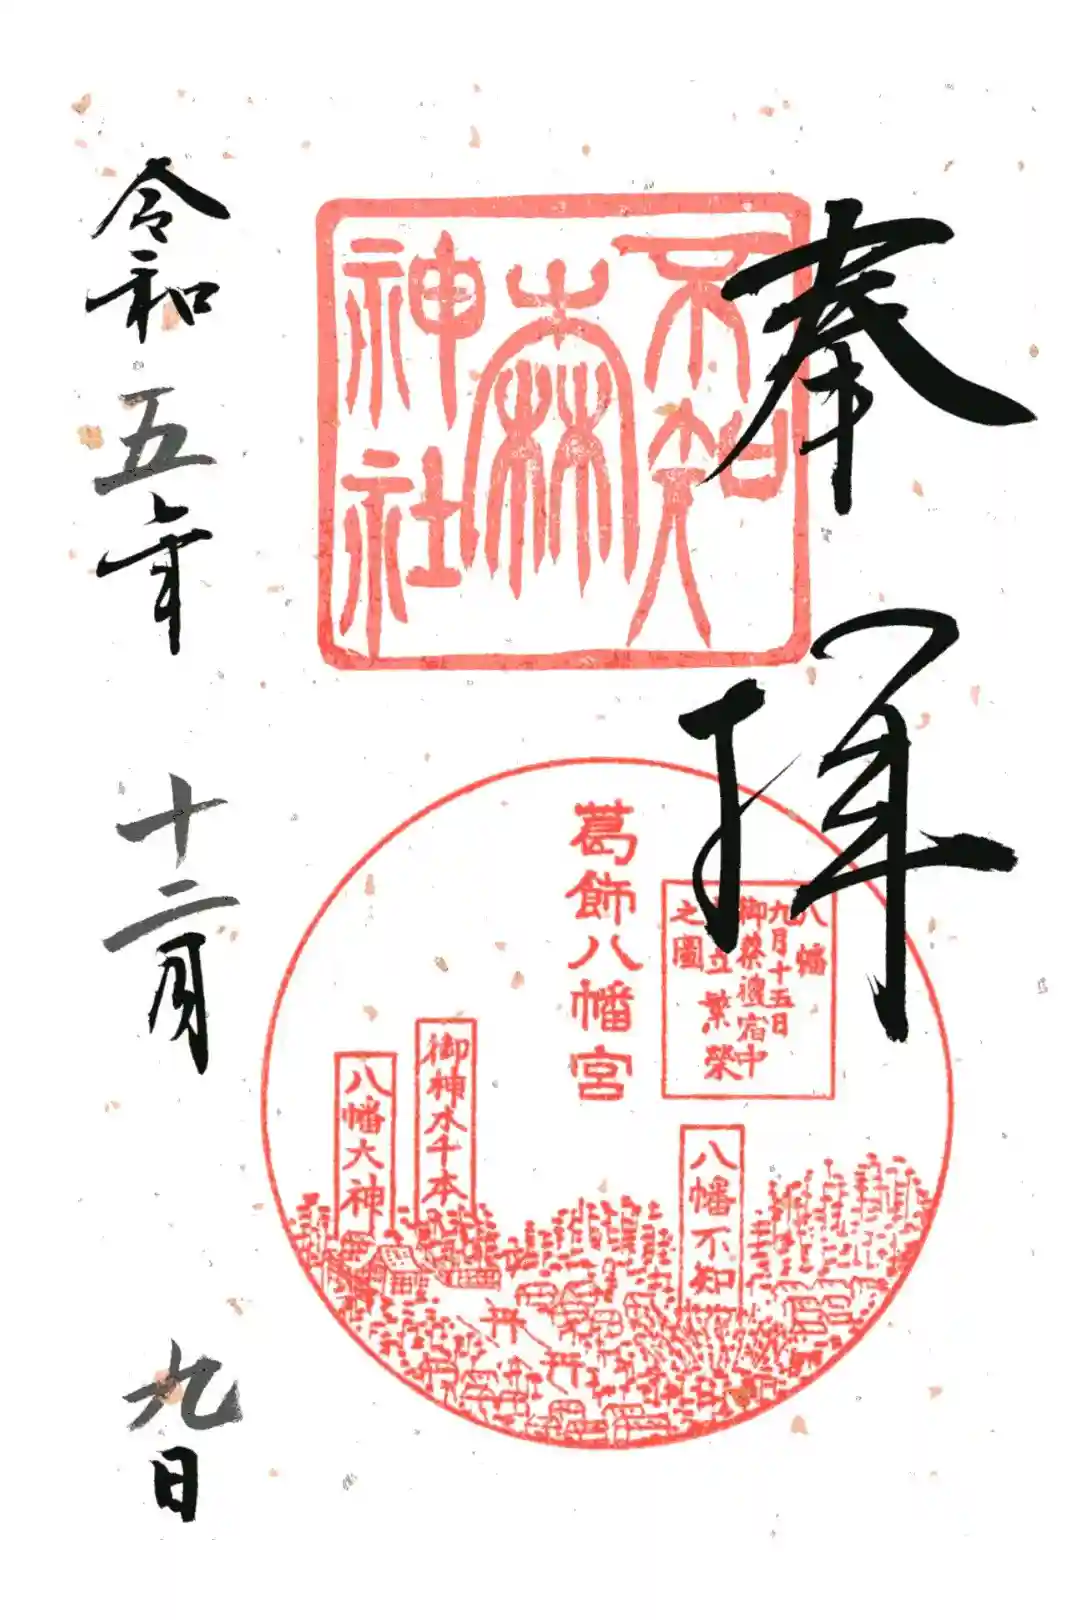 奉拝
不知
森
神社
葛飾八幡宮
八幡
九月十五日
御祭禮宿中
立繁榮
之圖
八幡不知
御神水千本
八幡大神
令和五年十二月九日